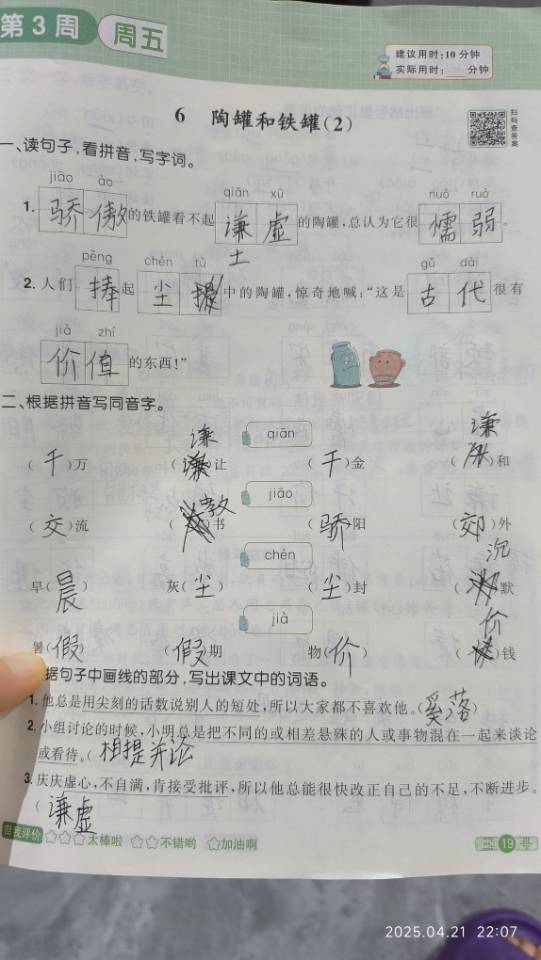 第3周 周五
建议用时:10分钟
实际用时: 分钟
6 陶罐和铁罐(2)
扫码查答案
一、读句子,看拼音,写字词。
jiāo ào qiān xū nuò ruò
1. 骄傲的铁罐看不起谦虚的陶罐,总认为它很懦弱。
pěng chén tǔ gǔ dài
土
2. 人们捧起尘中的陶罐,惊奇地喊:“这是古代很有
jià zhí
价值的东西!”
二、根据拼音写同音字。
qiān
谦 谦
(千)万 ( )让 (千)金 ( )和
jiāo
教
(交)流 ( )书 (骄)阳 (郊)外
chén
沉
早(晨) 灰(尘) (尘)封 ( )默
jià
价
暑(假) (假)期 物(价) ( )钱
据句子中画线的部分,写出课文中的词语。
1. 他总是用尖刻的话数说别人的短处,所以大家都不喜欢他。(奚落)
2. 小组讨论的时候,小明总是把不同的或相差悬殊的人或事物混在一起来谈论
或看待。(相提并论
3. 庆庆虚心,不自满,肯接受批评,所以他总能很快改正自己的不足,不断进步。
(谦虚
自我评价 太棒啦 不错哟 加油啊
19
2025.04.21 22:07